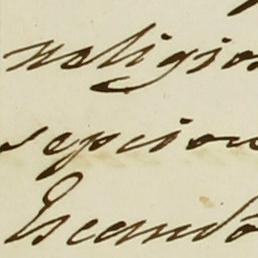 religion
sepcion
Escandó